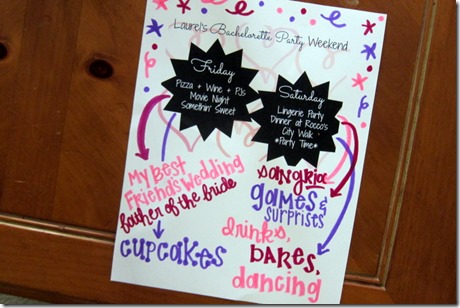 Laurel's Bachelorette Party Weekend
Friday
Pizza + Wine + PJs
Movie Night
Somethin' Sweet
Saturday
Lingerie Party
Dinner at Rocco's
City Walk
*Party Time*
My Best
Friend's Wedding
father of the bride
CUPCAKES
sangria
games &
surprises
drinks,
BABES,
dancing